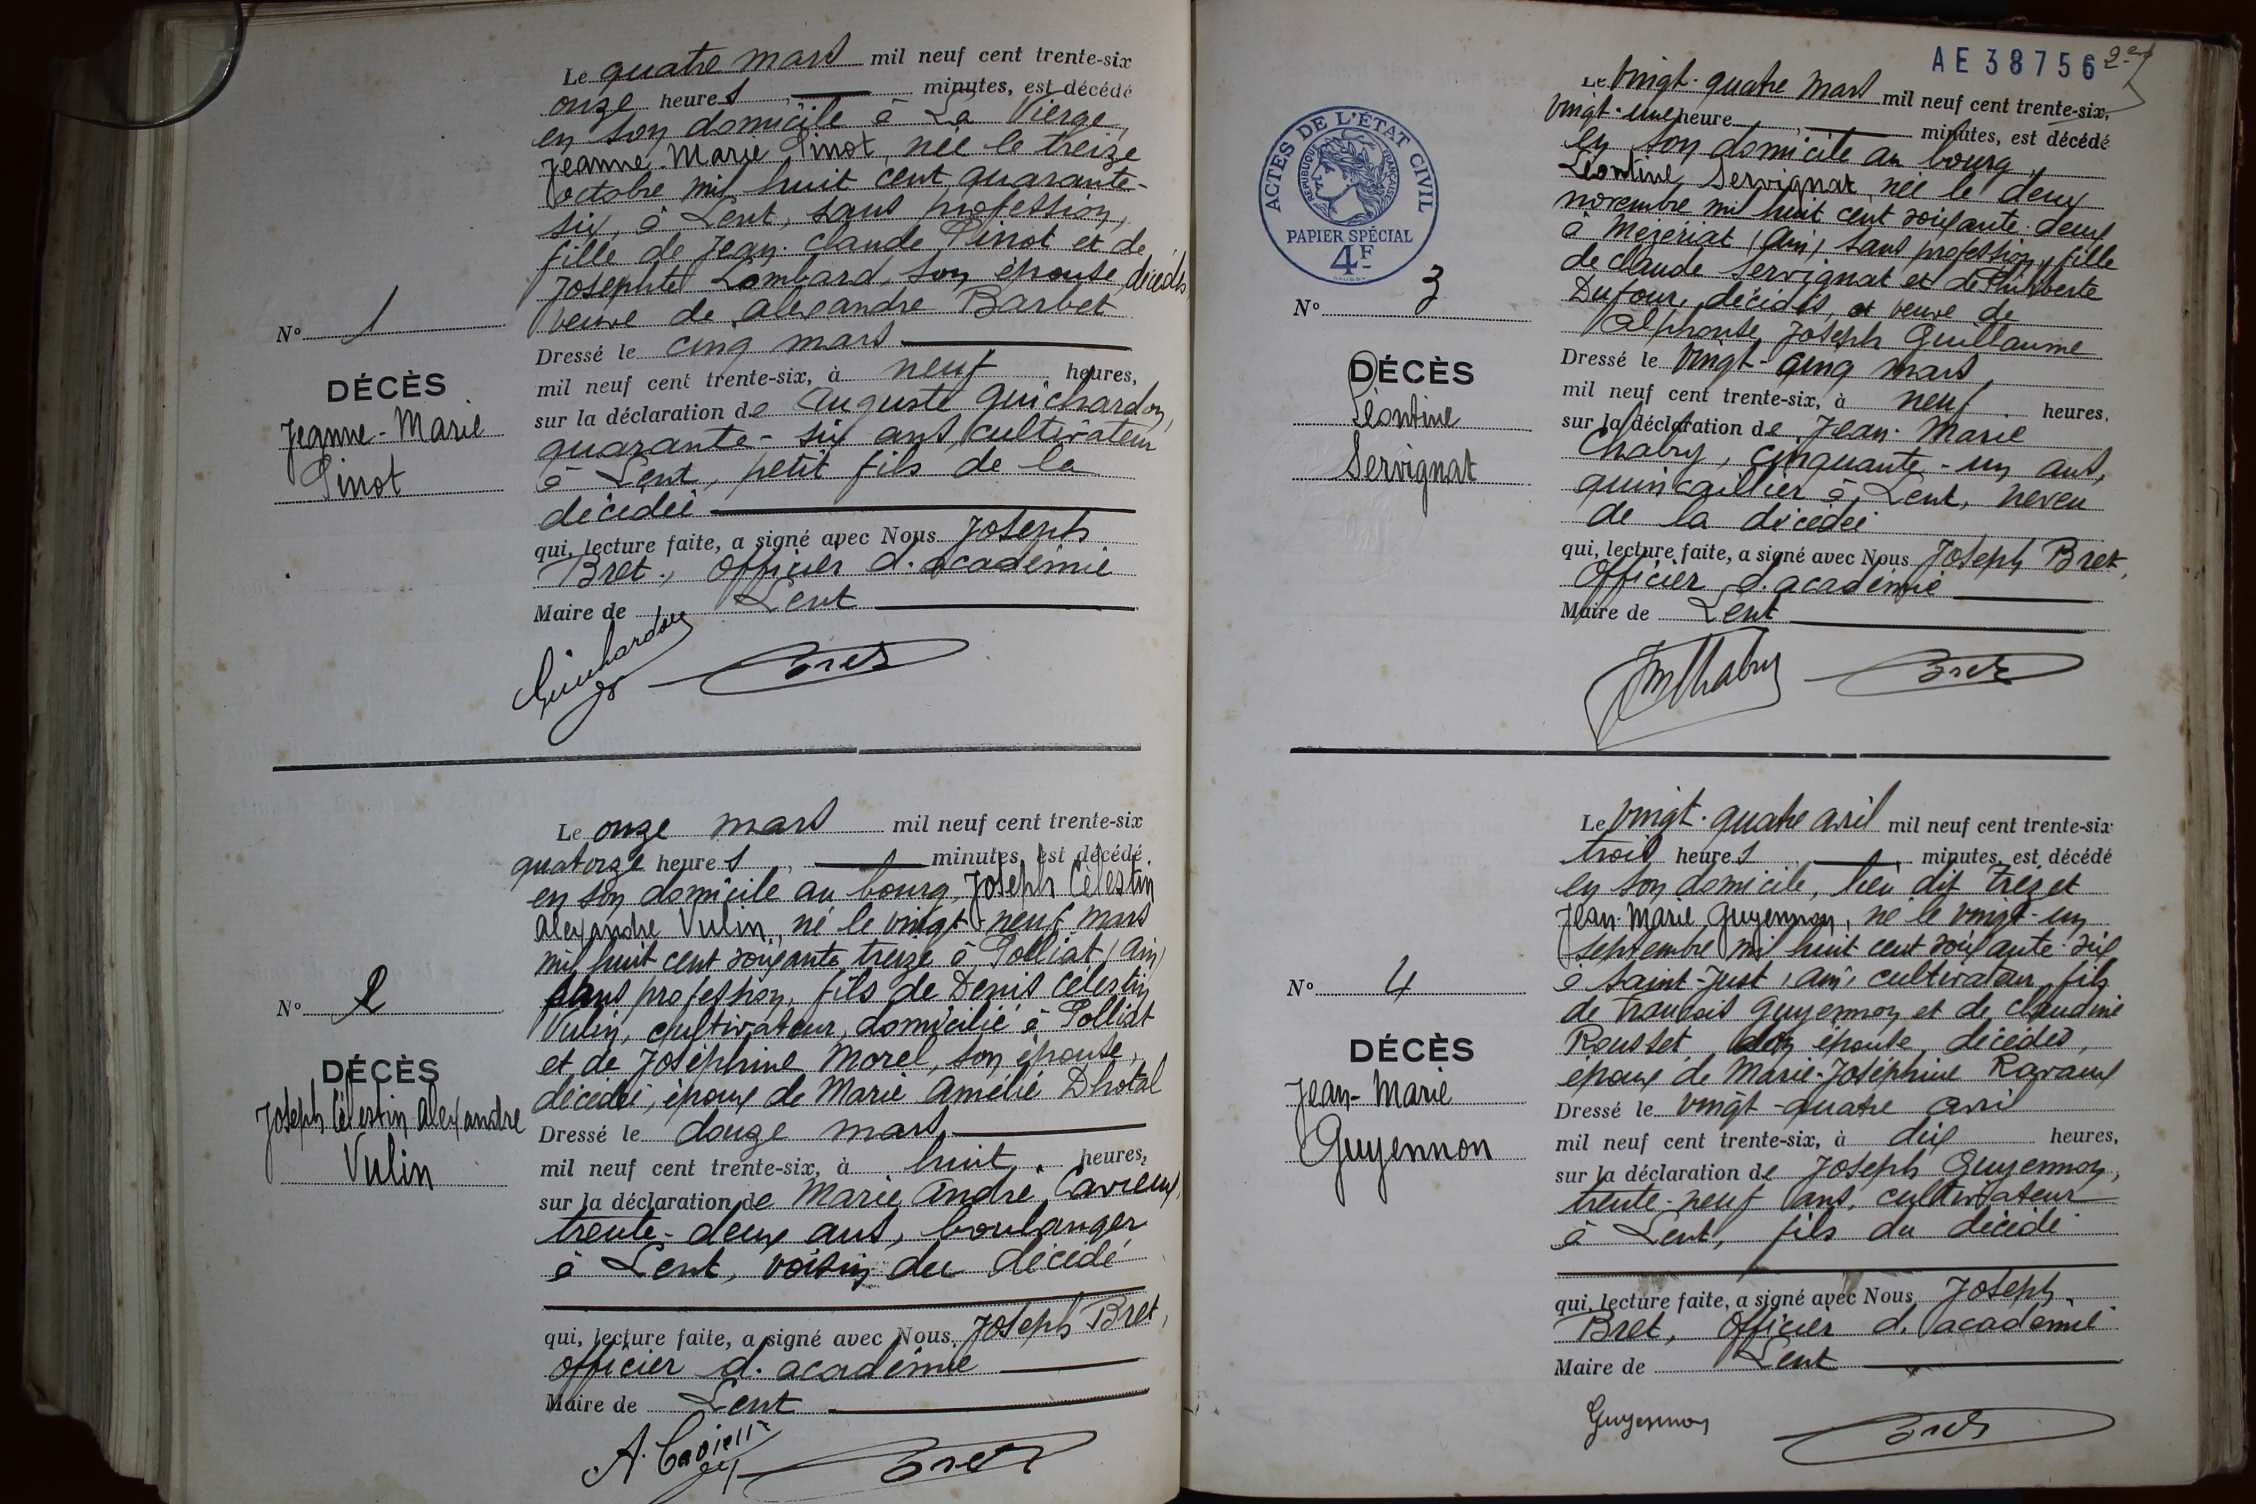 Le quatre mars mil neuf cent trente-six
onze heures minutes, est décédé
en son domicile à La Vierge,
Jeanne-Marie Pinot, née le treize
octobre mil huit cent quarante-
six, à Lent, sans profession,
fille de Jean-Claude Pinot et de
Josephte Lombard, son épouse, décédés
veuve de Alexandre Barbet
Nº 1
DÉCÈS
Jeanne-Marie
Pinot
Dressé le cinq mars
mil neuf cent trente-six, à neuf heures,
sur la déclaration de Auguste Guichardon,
quarante-six ans, cultivateur
à Lent, petit fils de la
décédée
qui, lecture faite, a signé avec Nous Joseph
Bret, Officier d'académie
Maire de Lent
Guichardon
Bret
Le onze mars mil neuf cent trente-six
quatorze heures minutes, est décédé
en son domicile au bourg, Joseph Célestin
Alexandre Vulin, né le vingt-neuf mars
mil huit cent soixante treize à Polliat (Ain)
sans profession, fils de Denis Célestin
Vulin, cultivateur, domicilié à Polliat
et de Joséphine Morel, son épouse,
décédée, époux de Marie Amélie Dhotal
Nº 2
DÉCÈS
Joseph Célestin Alexandre
Vulin
Dressé le douze mars
mil neuf cent trente-six, à huit heures,
sur la déclaration de Marie André Cavieux,
trente-deux ans, boulanger
à Lent, voisin du décédé
qui, lecture faite, a signé avec Nous Joseph Bret,
officier d'académie
Maire de Lent
Bret
AE 38756
Le vingt-quatre mars mil neuf cent trente-six,
vingt-une heure minutes, est décédé
en son domicile au bourg
Léontine Servignat née le deux
novembre mil huit cent soixante-deux
à Mézériat (Ain) sans profession, fille
de Claude Servignat et de Philiberte
Dufour, décédés, et veuve de
Alphonse Joseph Guillaume
ACTES DE L'ÉTAT CIVIL
RÉPUBLIQUE FRANÇAISE
PAPIER SPÉCIAL
4F
Nº 3
DÉCÈS
Léontine
Servignat
Dressé le vingt-cinq mars,
mil neuf cent trente-six, à neuf heures,
sur la déclaration de Jean-Marie
Chabry, cinquante-un ans,
quincaillier à Lent, neveu
de la décédée
qui, lecture faite, a signé avec Nous Joseph Bret,
Officier d'académie
Maire de Lent
JM Chabry
Bret
Le vingt-quatre avril mil neuf cent trente-six
trois heures minutes, est décédé
en son domicile, lieu dit Trézet
Jean-Marie Guyennon, né le vingt-un
septembre mil huit cent soixante-six
à Saint-Just (Ain) cultivateur, fils
de François Guyennon et de Claudine
Rousset son épouse, décédés,
époux de Marie-Joséphine Ravaux
Nº 4
DÉCÈS
Jean-Marie
Guyennon
Dressé le vingt-quatre avril
mil neuf cent trente-six, à dix heures,
sur la déclaration de Joseph Guyennon,
trente-neuf ans, cultivateur
à Lent, fils du décédé
qui, lecture faite, a signé avec Nous Joseph
Bret, Officier d'académie
Maire de Lent
Guyennon
Bret